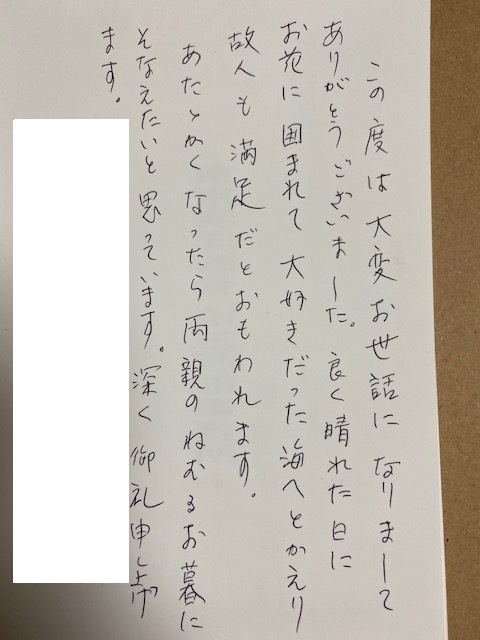 この度は大変お世話になりまして
ありがとうございました。良く晴れた日に
お花に囲まれて大好きだった海へとかえり
故人も満足だとおもわれます。
あたゝかくなったら両親のねむるお暮に
そなえたいと思っています。深く御礼申し上げ
ます。